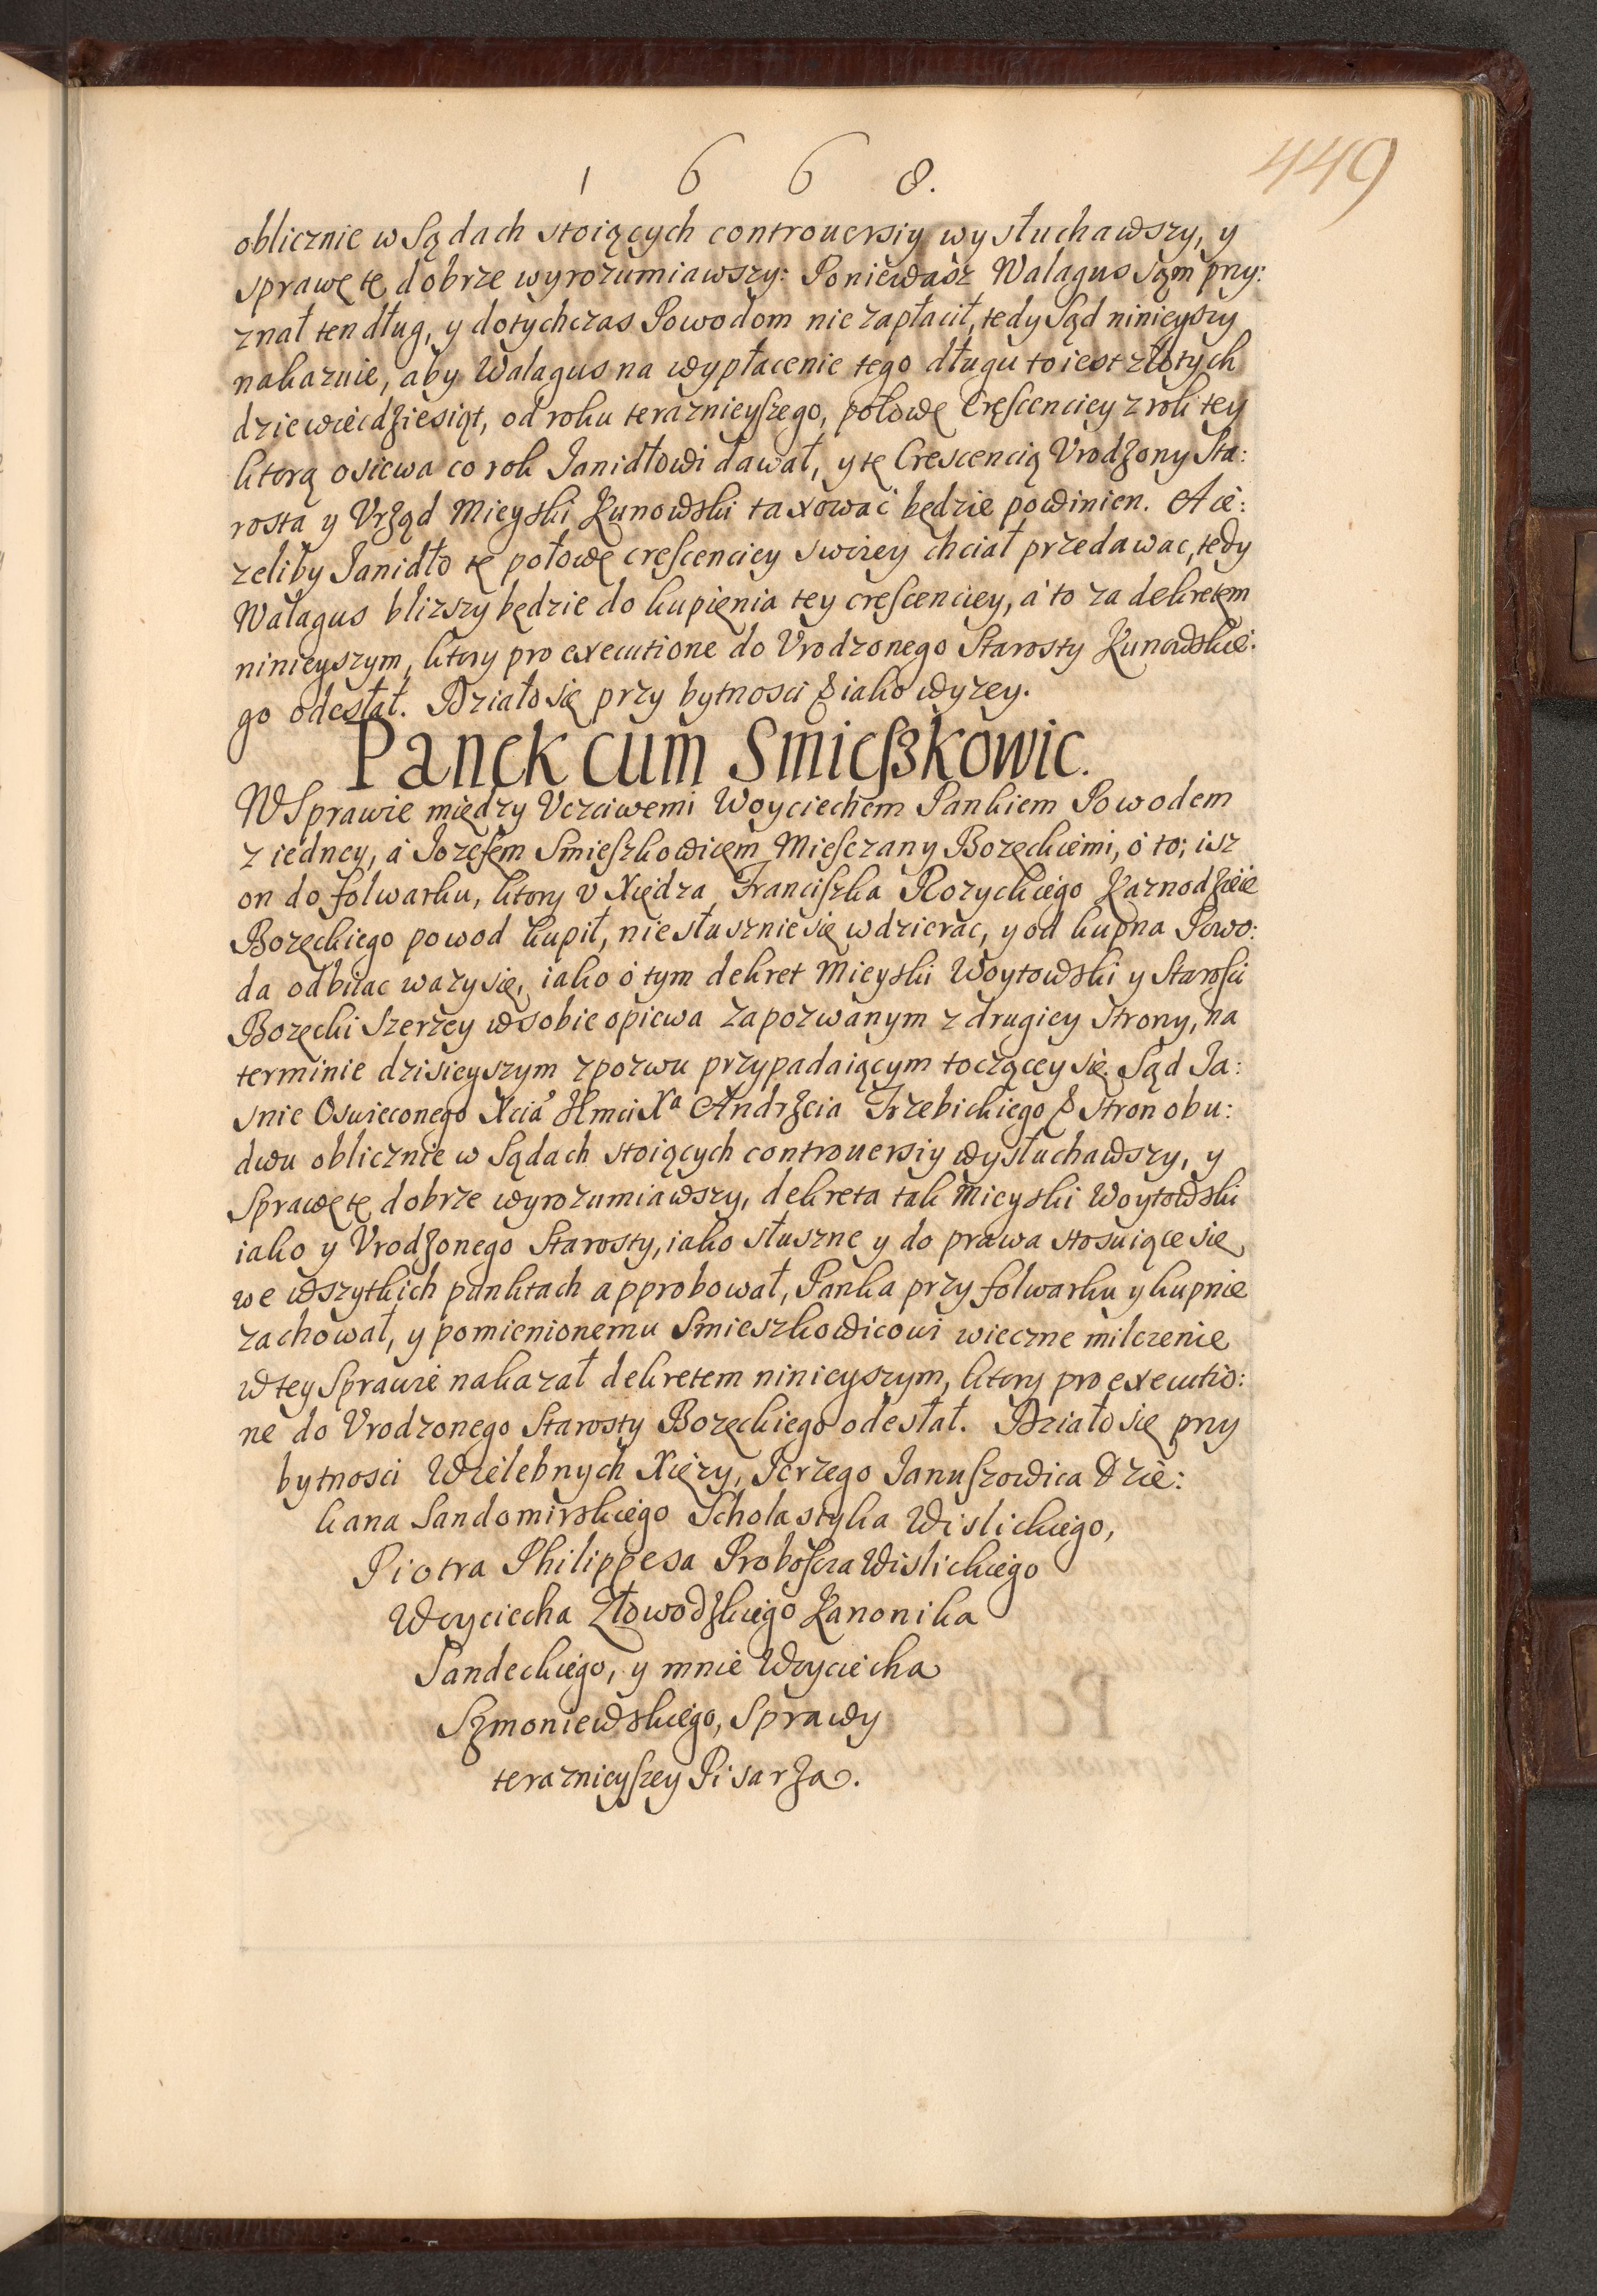 1 6 6 8.
449
oblicznie w Sądach stoiących controuersiy wysłuchawszy, y
sprawę tę dobrze wyrozumiawszy: Poniewasz Walagus sąm przy:
znał ten dług, y dotychczas Powodom nie zapłacił, tedy Sąd ninieyszy
nakazuie, aby Walagus na wypłacenie tego długu to iest złotych
dziewiećdziesiąt, od roku teraznieyszego, połowę Crescenciey z roli tey
ktorą osiewa co rok Janidłowi dawał, y tę Crescencią Vrodzony Sta:
rosta y Vrząd Mieyski Kunowski taxowac będzie powinien. A ie:
zeliby Janidło tę połowę crescenciey swoiey chciał przedawac, tedy
Walagus blizszy będzie do kupięnia tey crescenciey, a to za dekretem
ninieyszym, ktory pro executione do Vrodzonego Starosty Kunowskie:
go odesłał. Działo się przy bytnosci & iako wyzey.
Panek cum Smieszkowic.
W Sprawie między Vczciwemi Woyciechem Pankiem Powodem
z iedney, á Jozefem Smieszkowicem Miesczany Bozęckiemi, o to; isz
on do folwarku, ktory v Xiędza Franciszka Rozyckiego Kaznodzieie
Bozęckiego powod kupił, niesłusznie się wdzierac, y od kupna Powo:
da odbiiac wazy się, iako o tym dekret Mieyski Woytowski y Starosci
Bozęcki szerzey w sobie opiewa zapozwanym z drugiey strony, na
terminie dzisieyszym z pozwu przypadaiącym toczącey się. Sąd Ja:
snie Oswieconego Xcia Jmci Xa Andrzeia Trzebickiego & stron obu:
dwu oblicznie w Sądach stoiących controuersiy wysłuchawszy, y
Sprawę tę dobrze wyrozumiawszy, dekreta tak Mieyski Woytowski
iako y Vrodzonego Starosty, iako słuszne y do prawa stosuiące się
we wszytkich punktach approbował, Panka przy folwarku y kupnie
zachował, y pomienionemu Smieszkowicowi wieczne milczenie
w tey Sprawie nakazał dekretem ninieyszym, ktory pro executio:
ne do Vrodzonego Starosty Bozęckiego odesłał. Działo się przy
bytnosci Wielebnych Xięzy, Jerzego Januszowica Dzie:
kana Sandomirskiego Scholastyka Wislickiego,
Piotra Philippesa Proboscza Wislickiego
Woyciecha Złowodzkiego Kanonika
Sandeckiego, y mnie Woyciecha
Szmoniewskiego, Sprawy
teraznieyszey Pisarza.